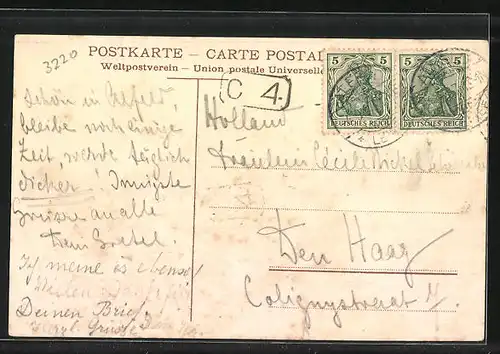 3220
POSTKARTE – CARTE POSTAL
Weltpostverein – Union postale Universelle
C 4.
5 5
DEUTSCHES REICH
5 5
DEUTSCHES REICH
schön in Alfeld,
bleibe noch einige
Zeit, werde täglich
dicker! Innigste
Grüsse an alle
Dein Gretel.
Ich meine es ebenso
Deinen Brief.
Herzl. Grüsse
Holland
Fräulein Cécile
Den Haag
Colignystraat